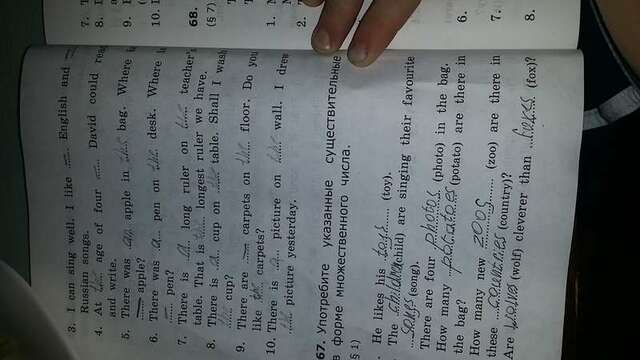 3. I can sing well. I like — English and —
Russian songs.
4. At the age of four — David could read
and write.
5. There was an apple in the bag. Where is
— apple?
6. There was a pen on the desk. Where is
— pen?
7. There is a long ruler on the teacher's
table. That is the longest ruler we have.
8. There is a cup on the table. Shall I wash
the cup?
9. There are — carpets on the floor. Do you
like the carpets?
10. There is a picture on the wall. I drew
the picture yesterday.
67. Употребите указанные существительные
в форме множественного числа.
§ 1)
He likes his toys (toy).
The children (child) are singing their favourite
songs (song).
There are four photos (photo) in the bag.
How many potatoes (potato) are there in
the bag?
How many new zoos (zoo) are there in
these countries (country)?
Are wolves (wolf) cleverer than foxes (fox)?
7.
8.
9.
10.
68.
(§ 7)
1.
2.
6.
7.
8.